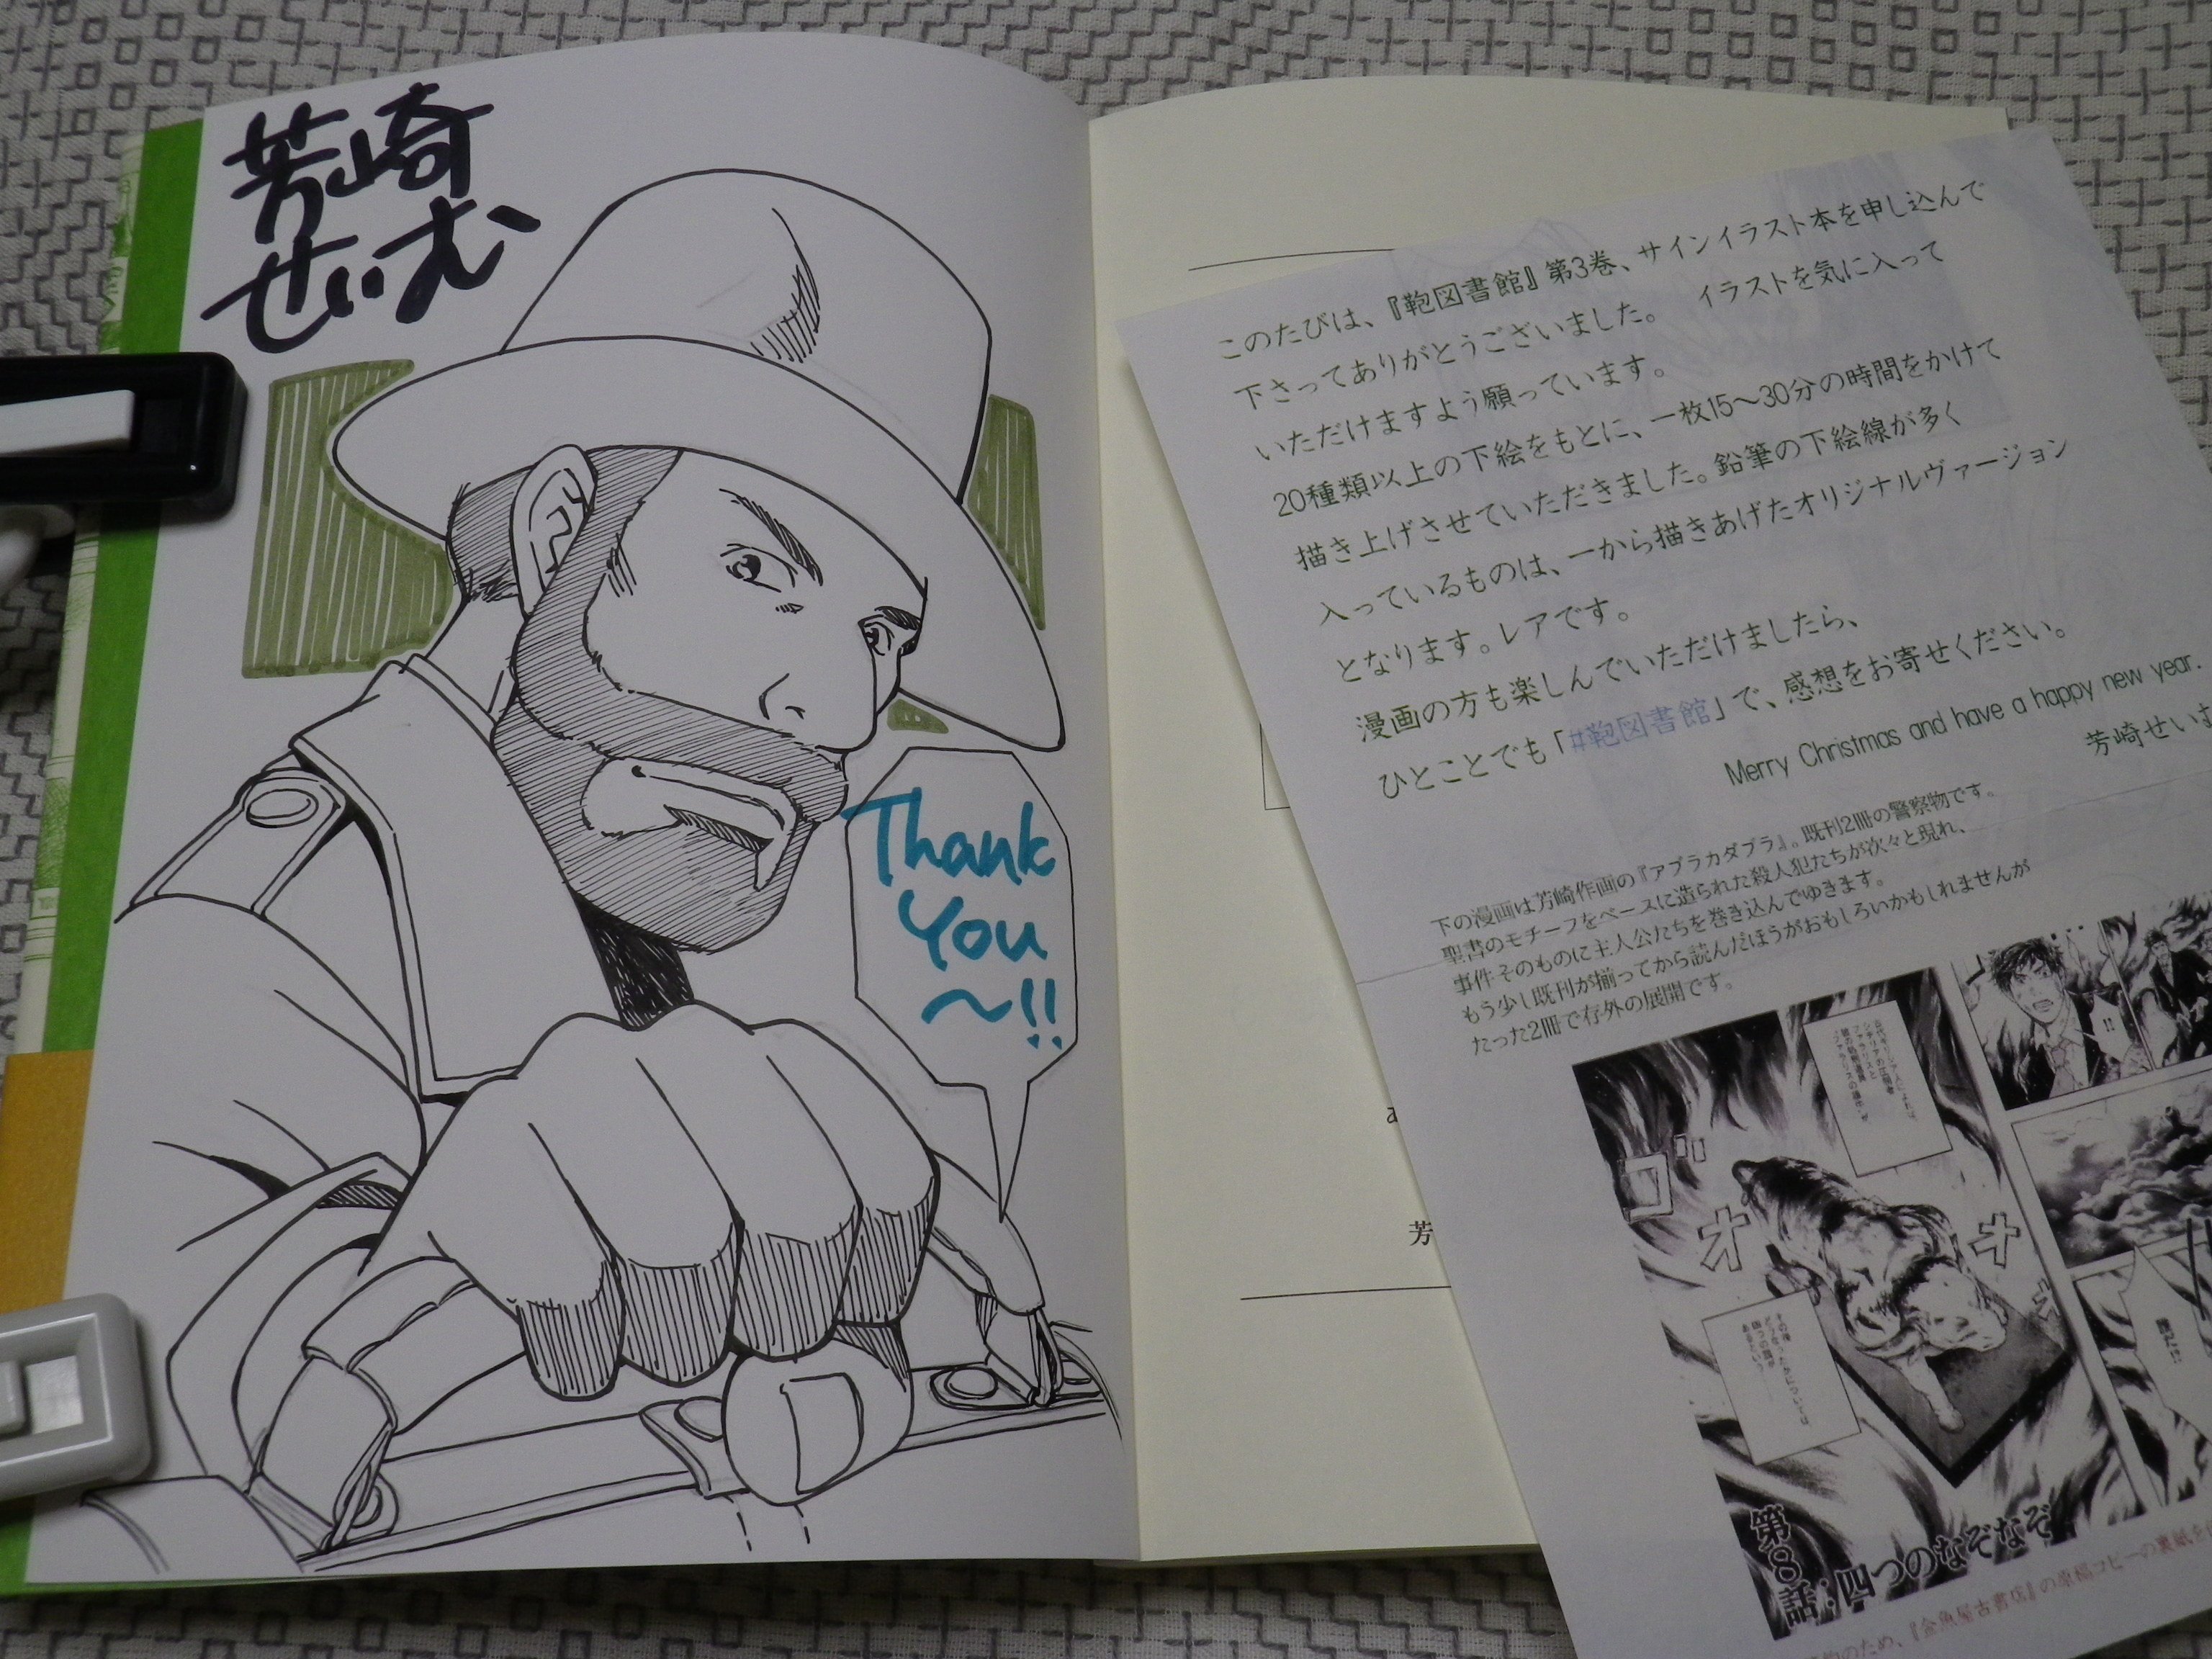 芳崎
せいむ
Thank
You
～!!
このたびは、『鞄図書館』第3巻、サインイラスト本を申し込んで
下さってありがとうございました。 イラストを気に入って
いただけますよう願っています。
20種類以上の下絵をもとに、一枚15～30分の時間をかけて
描き上げさせていただきました。鉛筆の下絵線が多く
入っているものは、一から描きあげたオリジナルヴァージョン
となります。レアです。
漫画の方も楽しんでいただけましたら、
ひとことでも「#鞄図書館」で、感想をお寄せください。
Merry Christmas and have a happy new year.
芳崎せいむ
下の漫画は芳崎作画の『アブラカダブラ』。既刊2冊の警察物です。
聖書のモチーフをベースに造られた殺人犯たちが次々と現れ、
事件そのものに主人公たちを巻き込んでゆきます。
もう少し既刊が揃ってから読んだほうがおもしろいかもしれませんが
たった2冊で存外の展開です。
ゴオオ
!!
第8話:四つのなぞなぞ
のため、『金魚屋古書店』の原稿コピーの裏紙を
a
芳